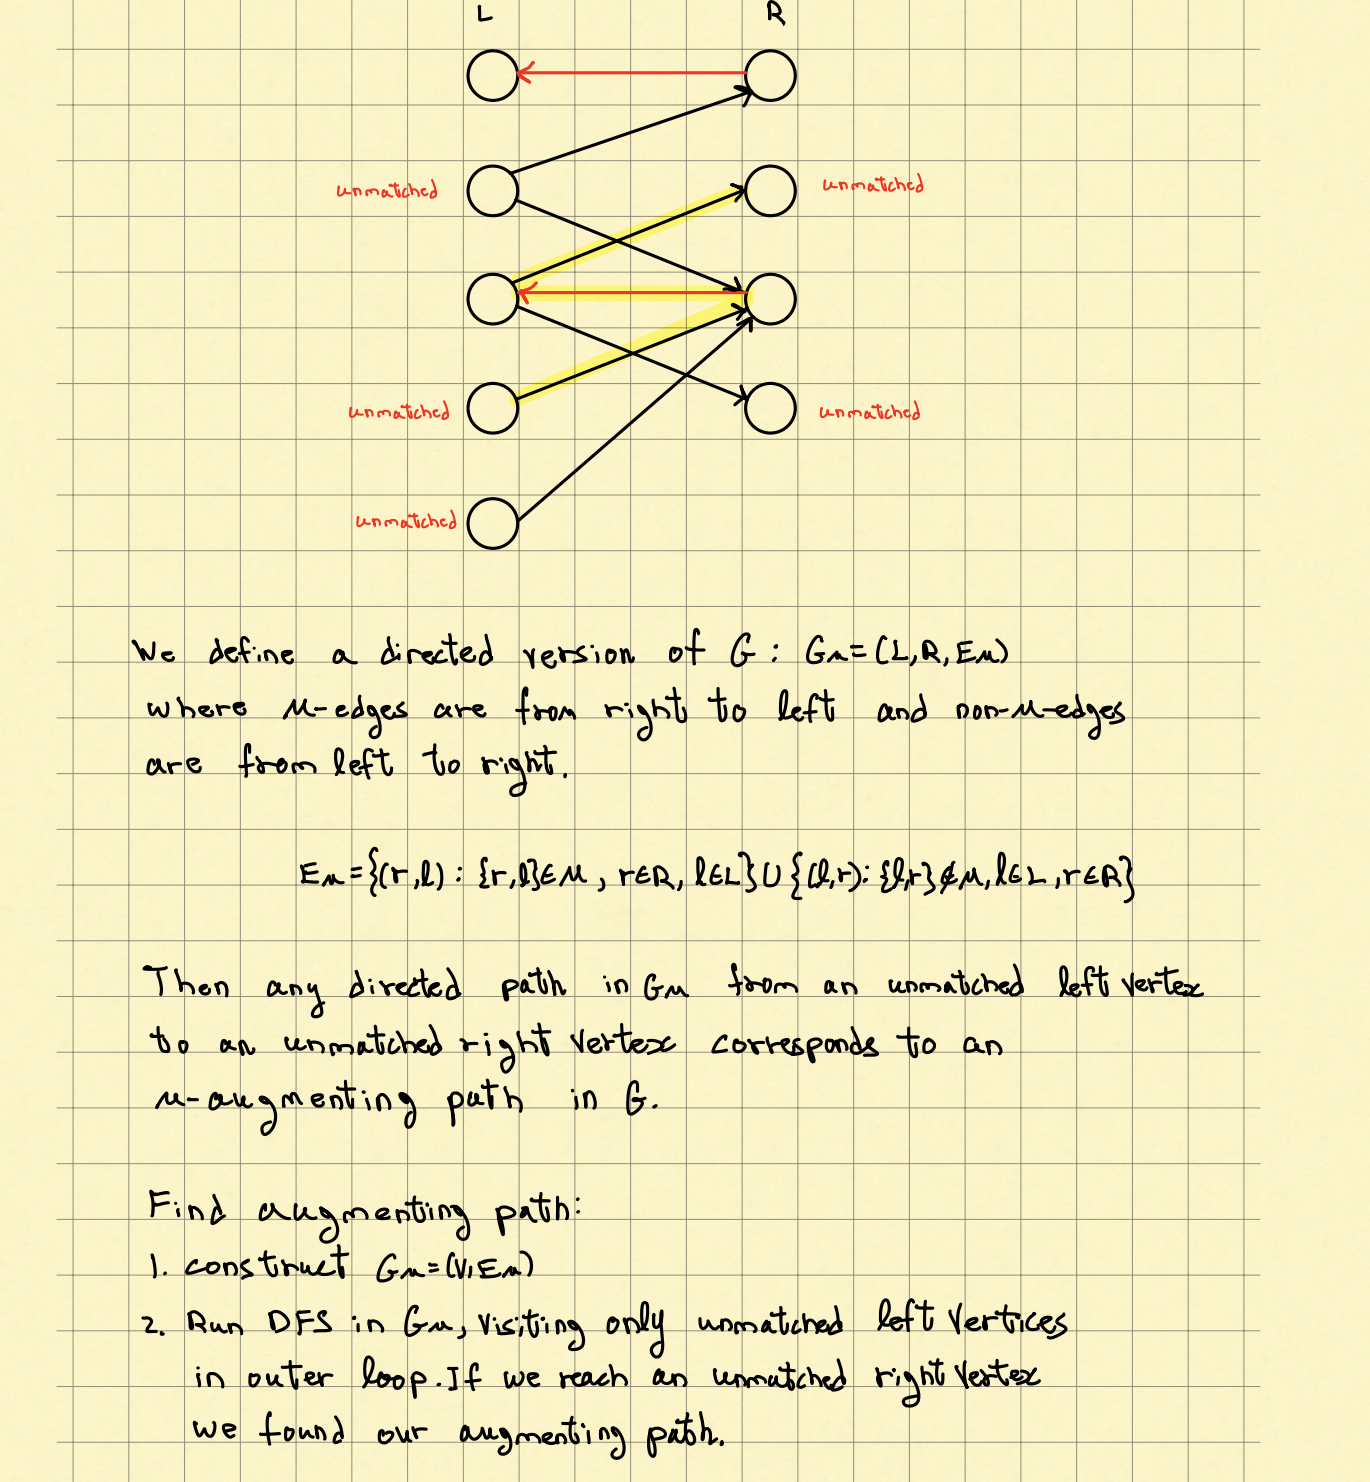 L R
unmatched unmatched
unmatched unmatched
unmatched
We define a directed version of G : G_M=(L,R,E_M)
where M-edges are from right to left and non-M-edges
are from left to right.
E_M={(r,l) : {r,l}∈M, r∈R, l∈L}∪{(l,r): {l,r}∉M, l∈L, r∈R}
Then any directed path in G_M from an unmatched left vertex
to an unmatched right vertex corresponds to an
M-augmenting path in G.
Find augmenting path:
1. construct G_M=(V,E_M)
2. Run DFS in G_M, visiting only unmatched left vertices
in outer loop. If we reach an unmatched right vertex
we found our augmenting path.